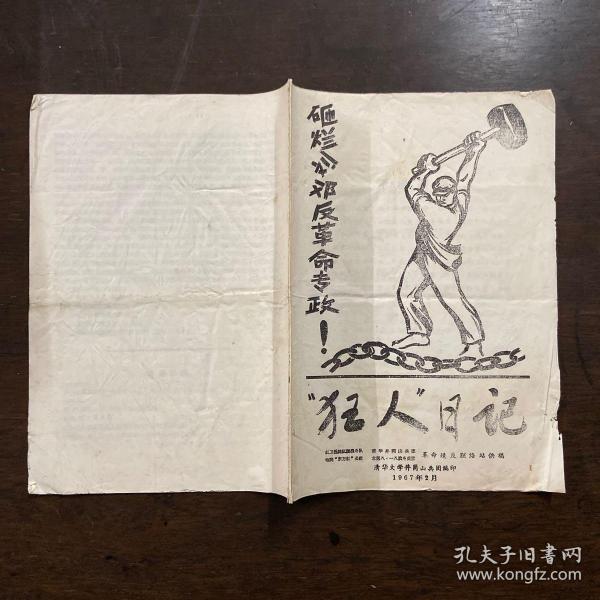 砸烂刘邓反革命专政！
“狂人”日记
革命造反联络站供稿
清华大学井冈山兵团编印
1967年2月
孔夫子旧书网
www.kongfz.com